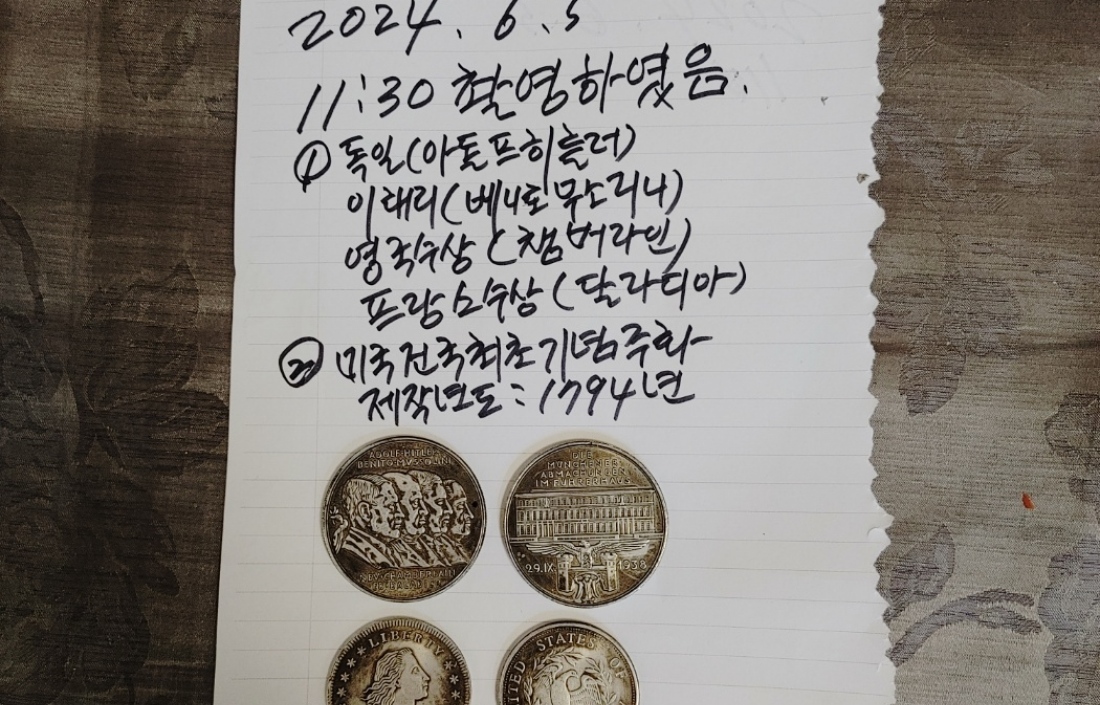 2024. 6. 5
11:30 촬영하였음.
① 독일(아돌프히틀러)
이태리(베니토무소리니)
영국수상(챔버라인)
프랑스수상(달라디아)
② 미국건국최초기념주화
제작년도:1794년
ADOLF HITLER
BENITO MUSSOLINI
DIE
MÜNCHENER
ABMACHUNGEN
IM FÜHRERHAUS
29.IX. 1938
LIBERTY
UNITED STATES OF